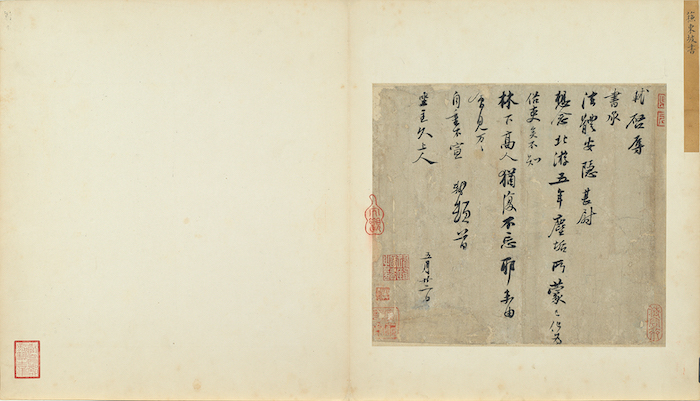 蘇東坡書
軾啓辱
書承
法體安隱甚尉
想念北游五年塵垢所蒙已化為
俗吏矣不知
林下高人猶復不忘耶未由
會見萬〻
自重不宣 軾頓首
坐主久上人
五月廿二日